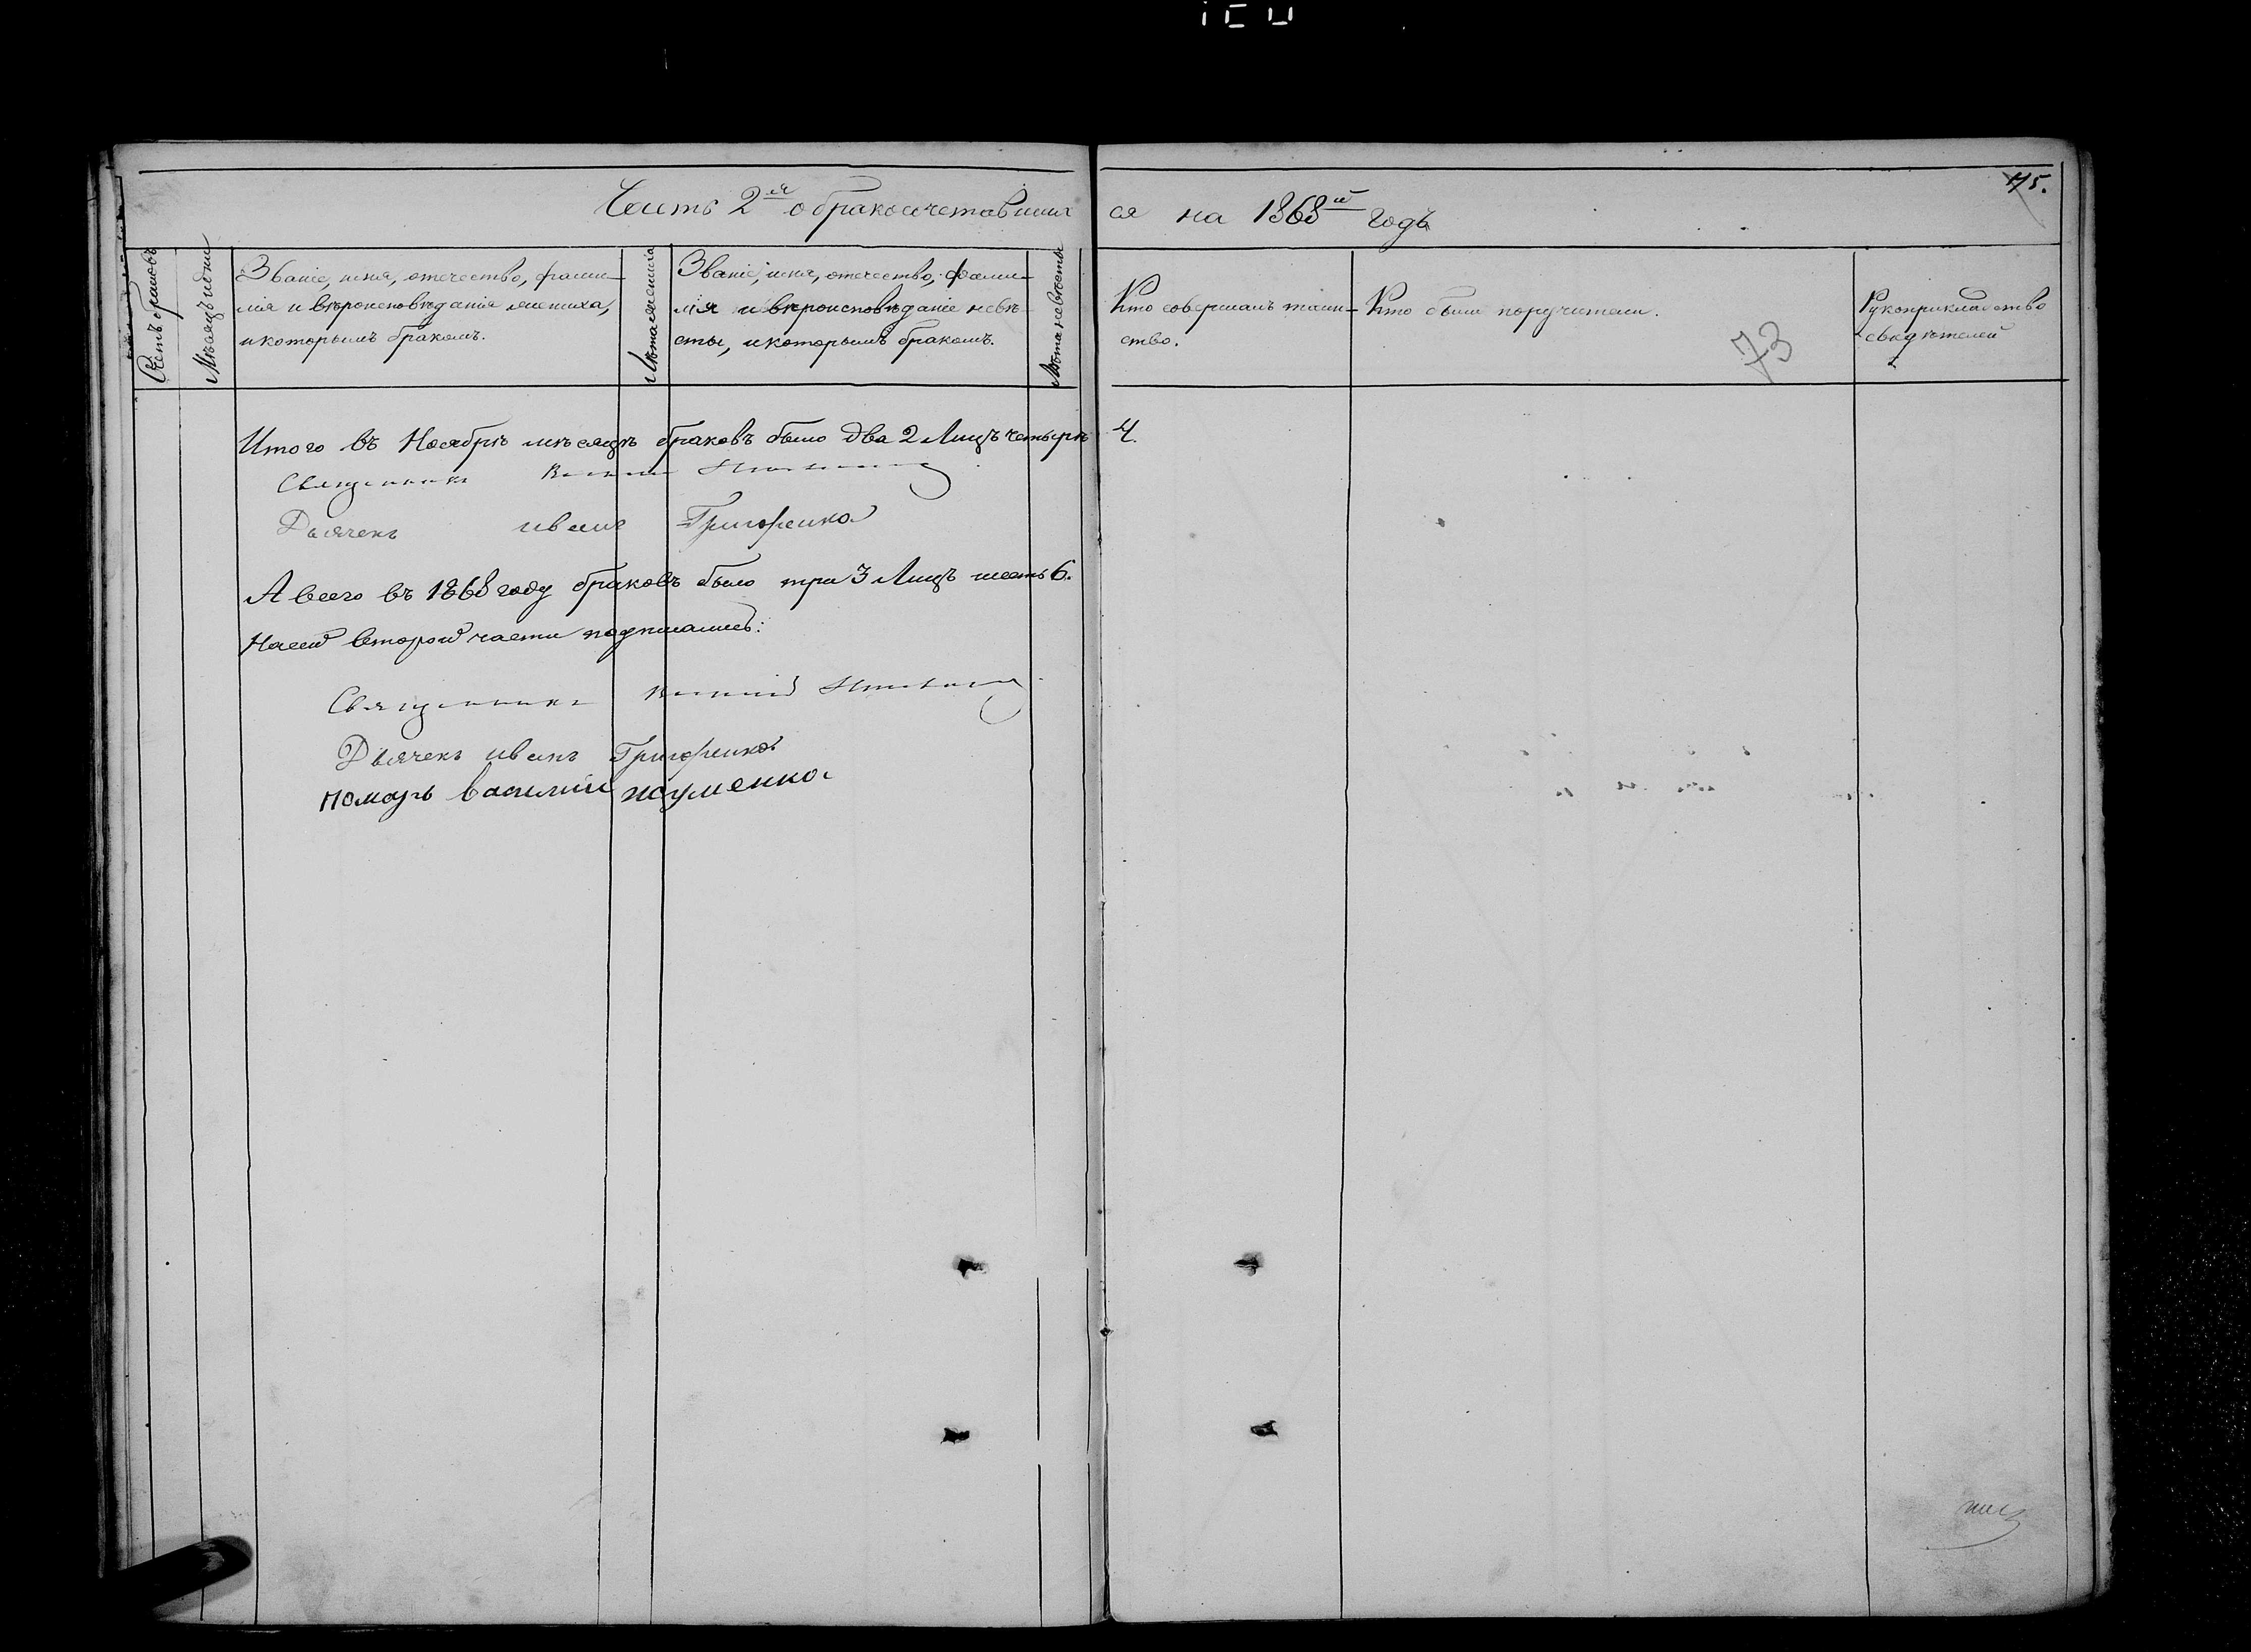 175.
Часть 2ая о бракосочетавшихся на 1868й годъ
Счетъ браковъ
Мѣсяцъ и дни
Званіе, имя, отечество, фами-
лія и вѣроисповѣданія жениха,
и которымъ бракомъ.
Лѣта жениха
Званіе, имя, отечество, фами-
лія и вѣроисповѣданіе невѣ-
сты, и которымъ бракомъ.
Лѣта невѣсты
Кто совершалъ таин-
ство.
Кто были поручители.
73
Рукоприкладство
свидѣтелей
Итого въ Ноябрѣ мѣсяцѣ браковъ было два 2 Лицъ четыре 4.
Священникъ
Дьячекъ иванъ Григоренко
А всего въ 1868 году браковъ было три 3 Лицъ шесть 6.
На сей второй части подписались:
Священникъ
Дьячекъ иванъ Григоренко
помарь василий науменко